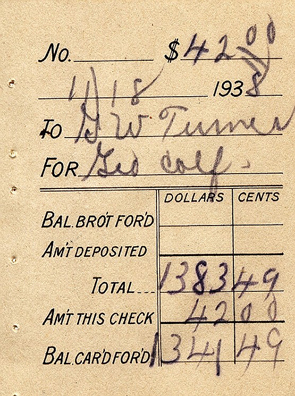 No. $42 00
11/18 1938
To G W Turner
For Geo calf.
DOLLARS CENTS
BAL. BRO'T FOR'D
AM'T DEPOSITED
TOTAL 1383 49
AM'T THIS CHECK 42 00
BAL. CAR'D FOR'D 1341 49